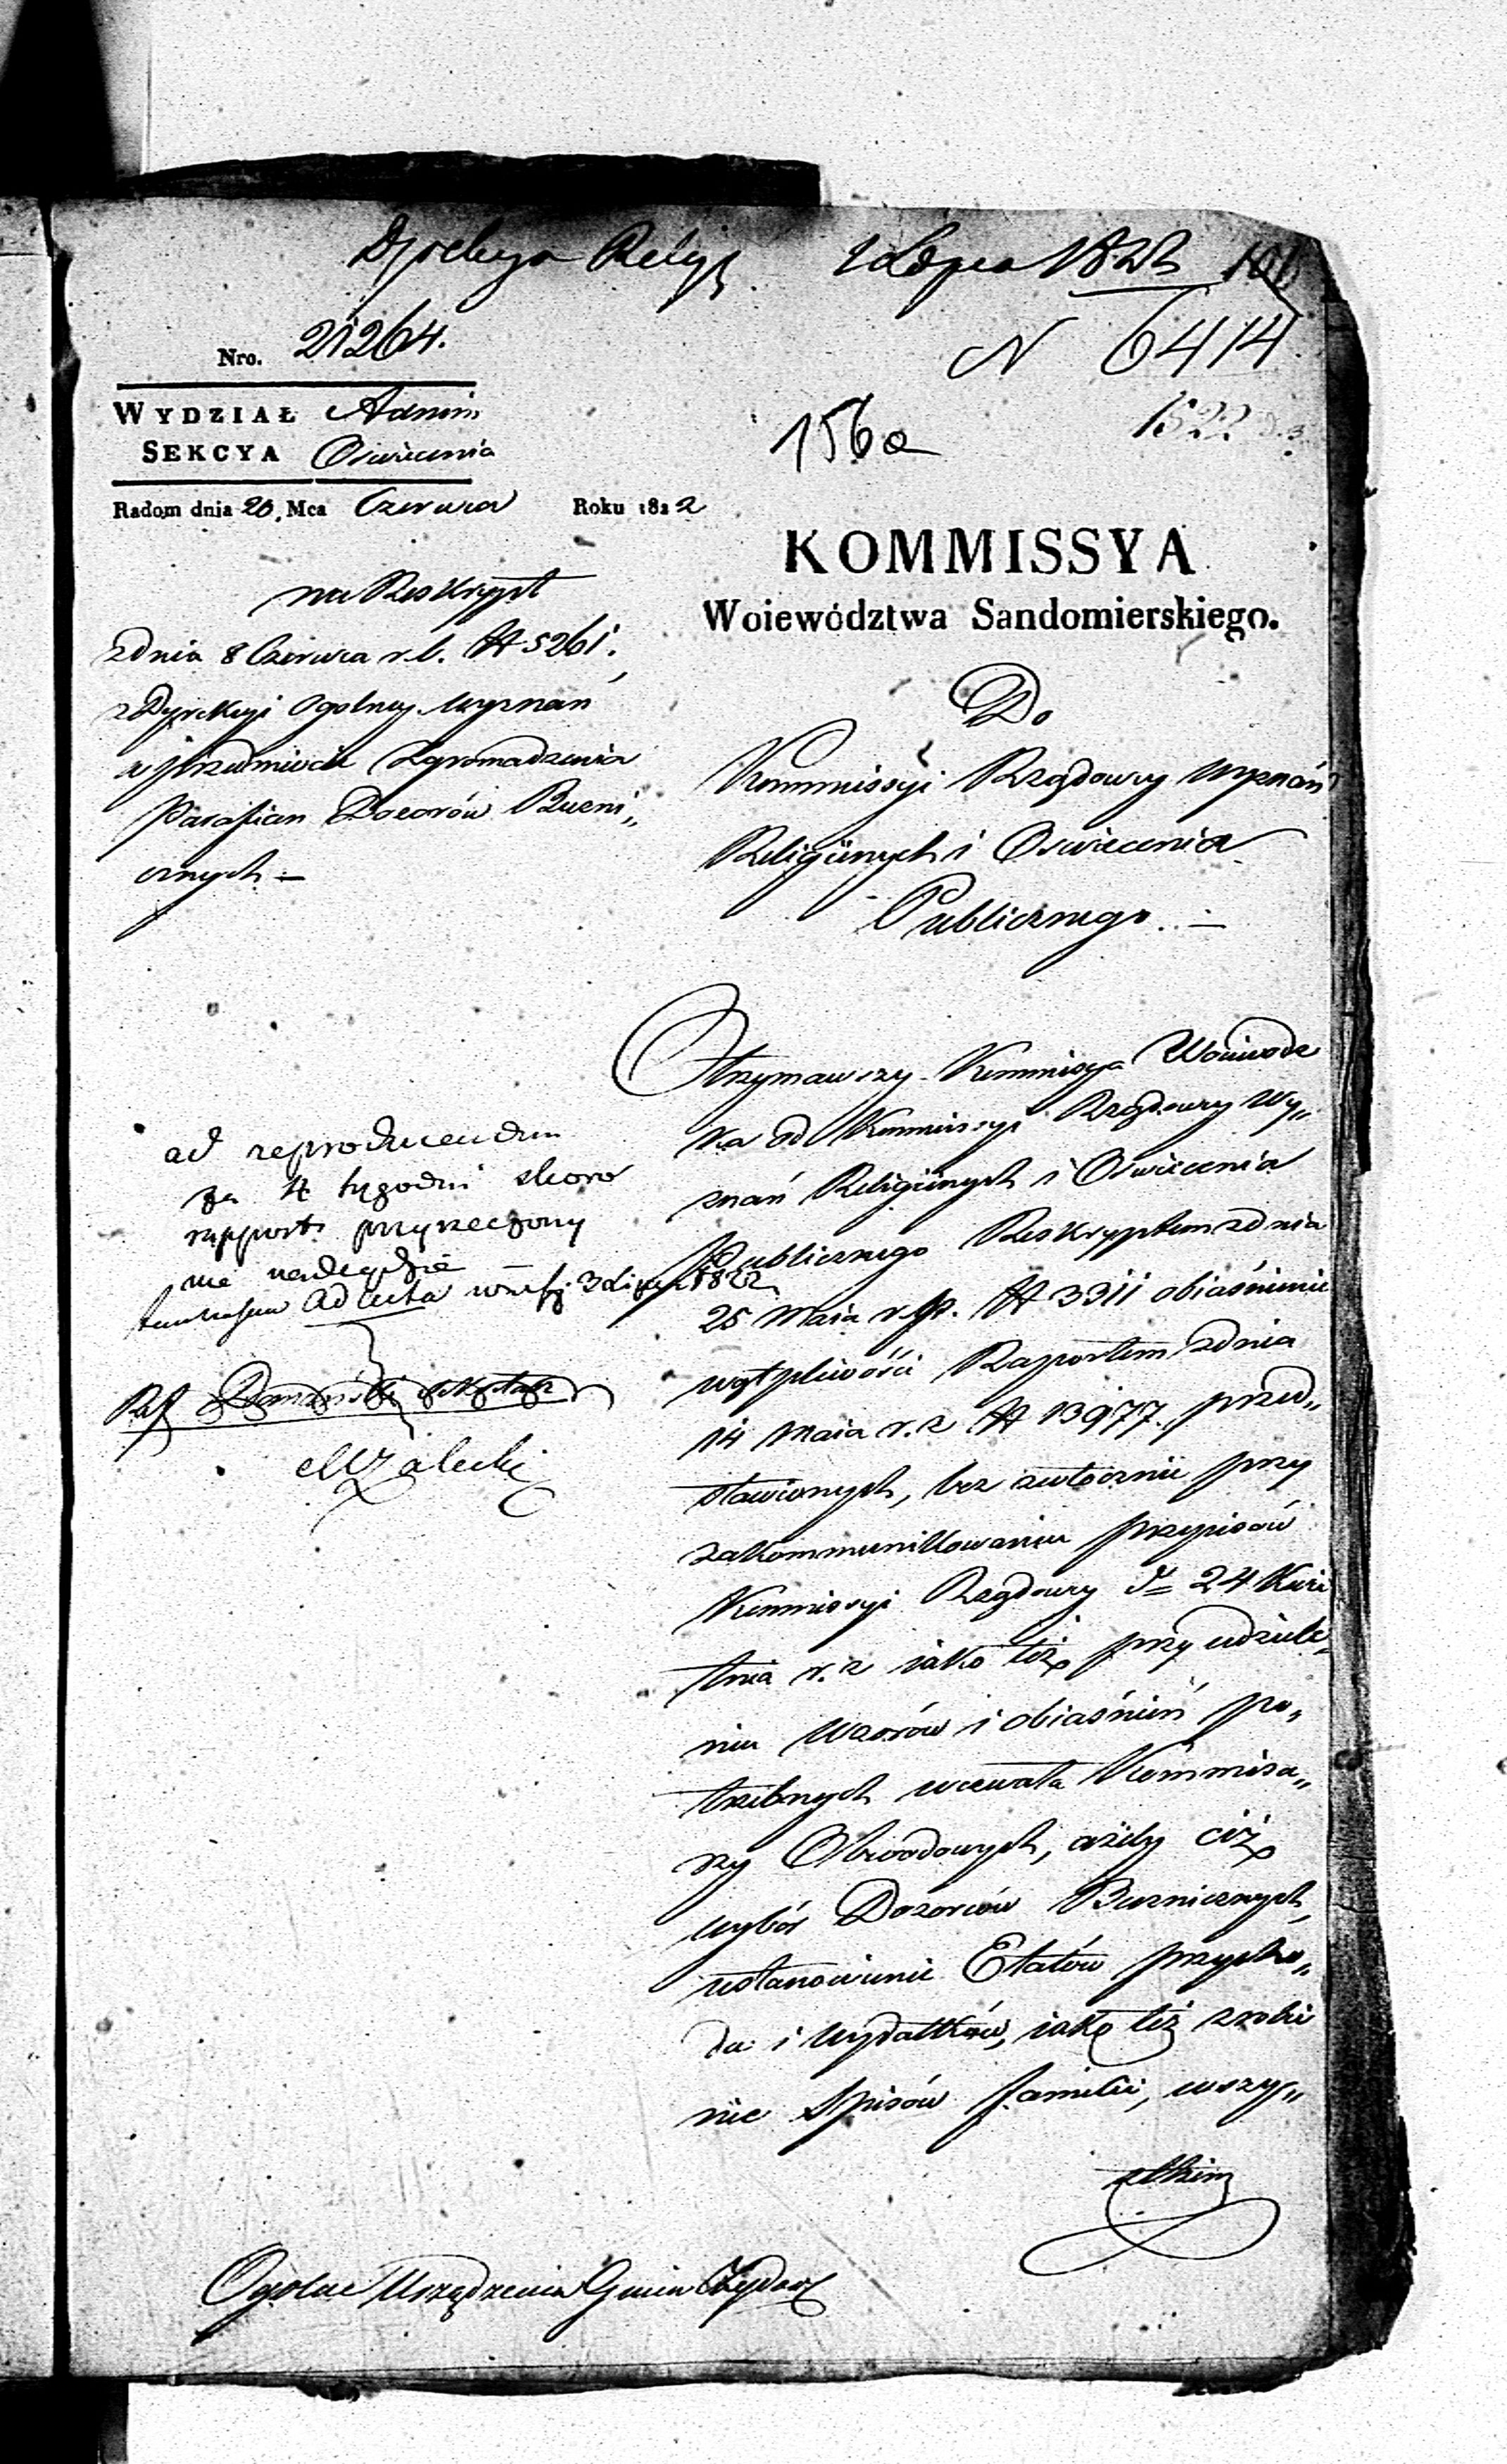 Dyrekcya Religij. 2 Lipca 1822
Nro. 21264.
N 6414
WYDZIAŁ Admin
SEKCYA Oswiecenia
156a
1522
Radom dnia 20. Mca Czerwca Roku 1822
KOMMISSYA
Woiewództwa Sandomierskiego.
na Reskrypt
z dnia 8 Czerwca r. b. N 5261.
z Dyrekcyi Ogolney wyznań
w przedmiocie Zgromadzenia
Parafian Dozorów Buzni„
cznych —
Do
Kommissyi Rządowy wyznań
Religiinych i Oswiecenia
Publicznego. —
Otrzymawszy Kommissya Woiewodz
ka od Kommissyi Rządowy Wy„
znań Religiinych i Oswiecenia
Publicznego Reskryptem z dnia
25 Maia r. p. N 3311 obiaśnienie
wątpliwości Raportem z dnia
14 Maia r. z N 13977. przed„
stawionych, bez zwłocznie przy
zakommunikowaniu przepisów
Kommissyi Rządowy d= 24 Kwie
tnia r. z iako też przy udziele„
niu wzorów i obiaśnień po„
trzebnych wezwała Kommisa„
rzy Obwodowych, ażeby ciż
wybór Dozorców Buznicznych,
ustanowienie Etatów przycho„
du i wydatków, iako też zrobie
nie Spisów familii, wszy„
stkim
ad reproducendum
za 4 tygodni skoro
rapport przyrzeczony
nie nadeydzie
ad acta 3 Lipca 1822
M Zaleski
Ogolne Urządzenia Gmin Żydow